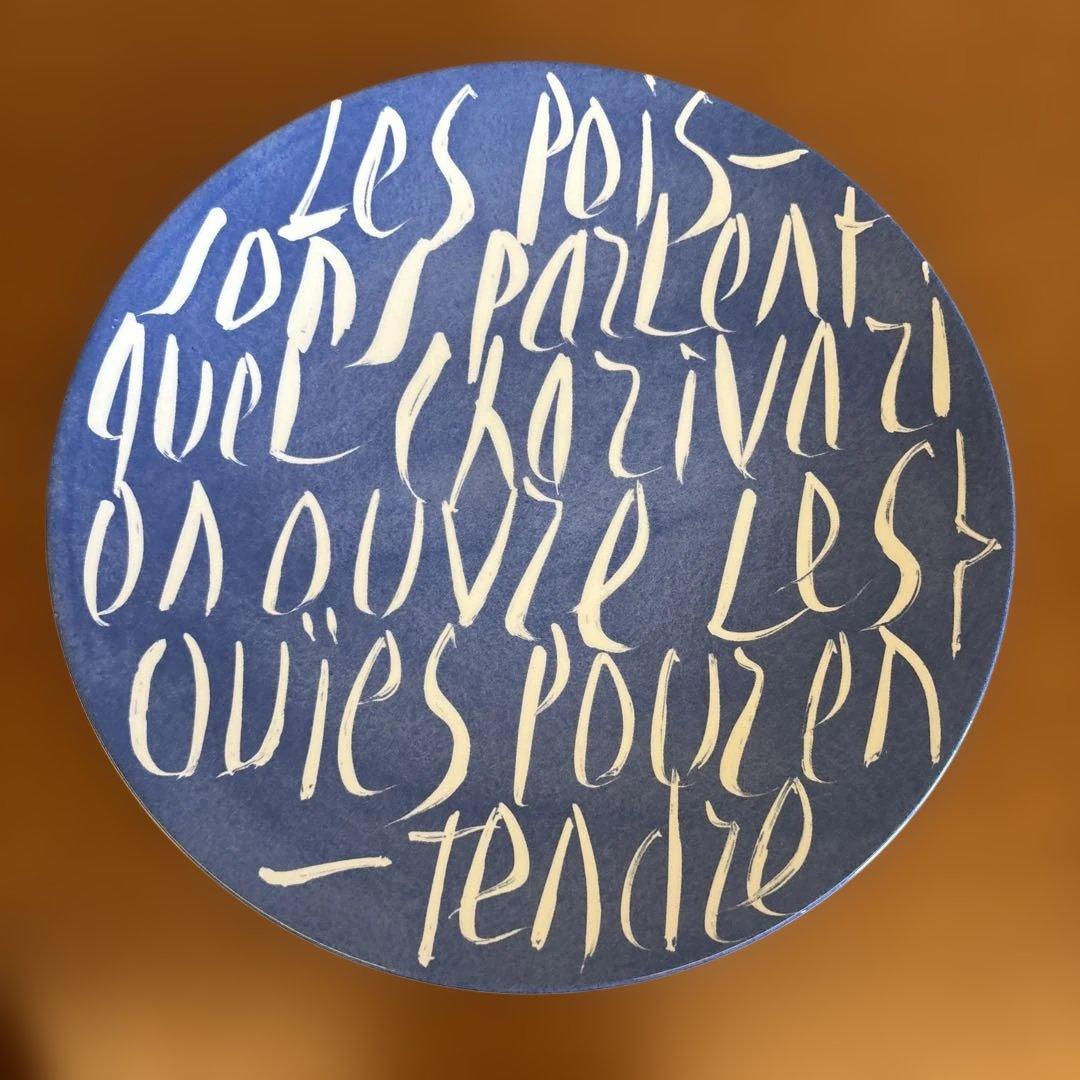 Les pois-
sons parlent
quel charivari
on ouvre les
ouïes pour en
-tendre